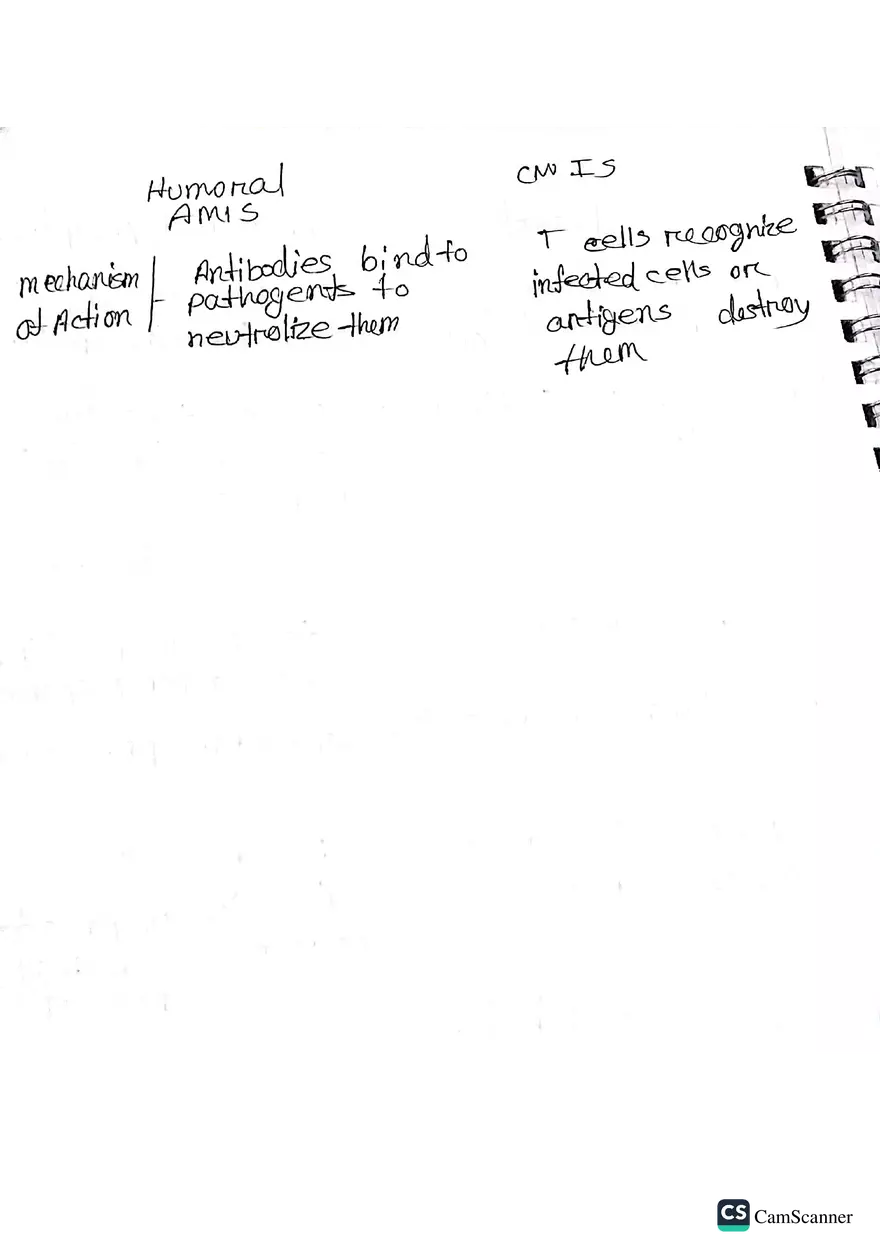 Humoral
AMIS
CMIS
mechanism
of Action
Antibodies bind to
pathogents to
neutrolize them
T cells recognize
infected cells or
antigens destroy
them
CS CamScanner